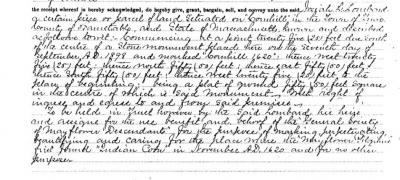 the receipt whereof is hereby acknowledged, do hereby give, grant, bargain, sell, and convey unto the said Josiah D. Lombard
a certain piece or parcel of land situated on Cornhill, in the Town of Truro
County of Barnstable, and State of Massachusetts, known and described
as follows to wit:- Commencing at a point twenty five (25) feet due South
of the centre of a Stone monument placed there on the Seventh day of
September A.D. 1898 and marked "Cornhill 1620." thence West twenty
five (25) feet; thence North fifty (50) feet; thence East fifty (50) feet;
thence South fifty (50) feet; thence West twenty five (25) feet to the
place of beginning; being a plot of ground fifty (50) feet square
in the centre of which is said Monument. With right of
ingress and egress to and from said premises.
To be held in trust however by the said Lombard his heirs
and assigns for the use benefit and behoof of the General Society
of Mayflower Descendants. For the purpose of marking perpetuating,
beautifying and caring for the place where the Mayflower Pilgrims
first found Indian Corn in November A.D. 1620 and for no other
purpose